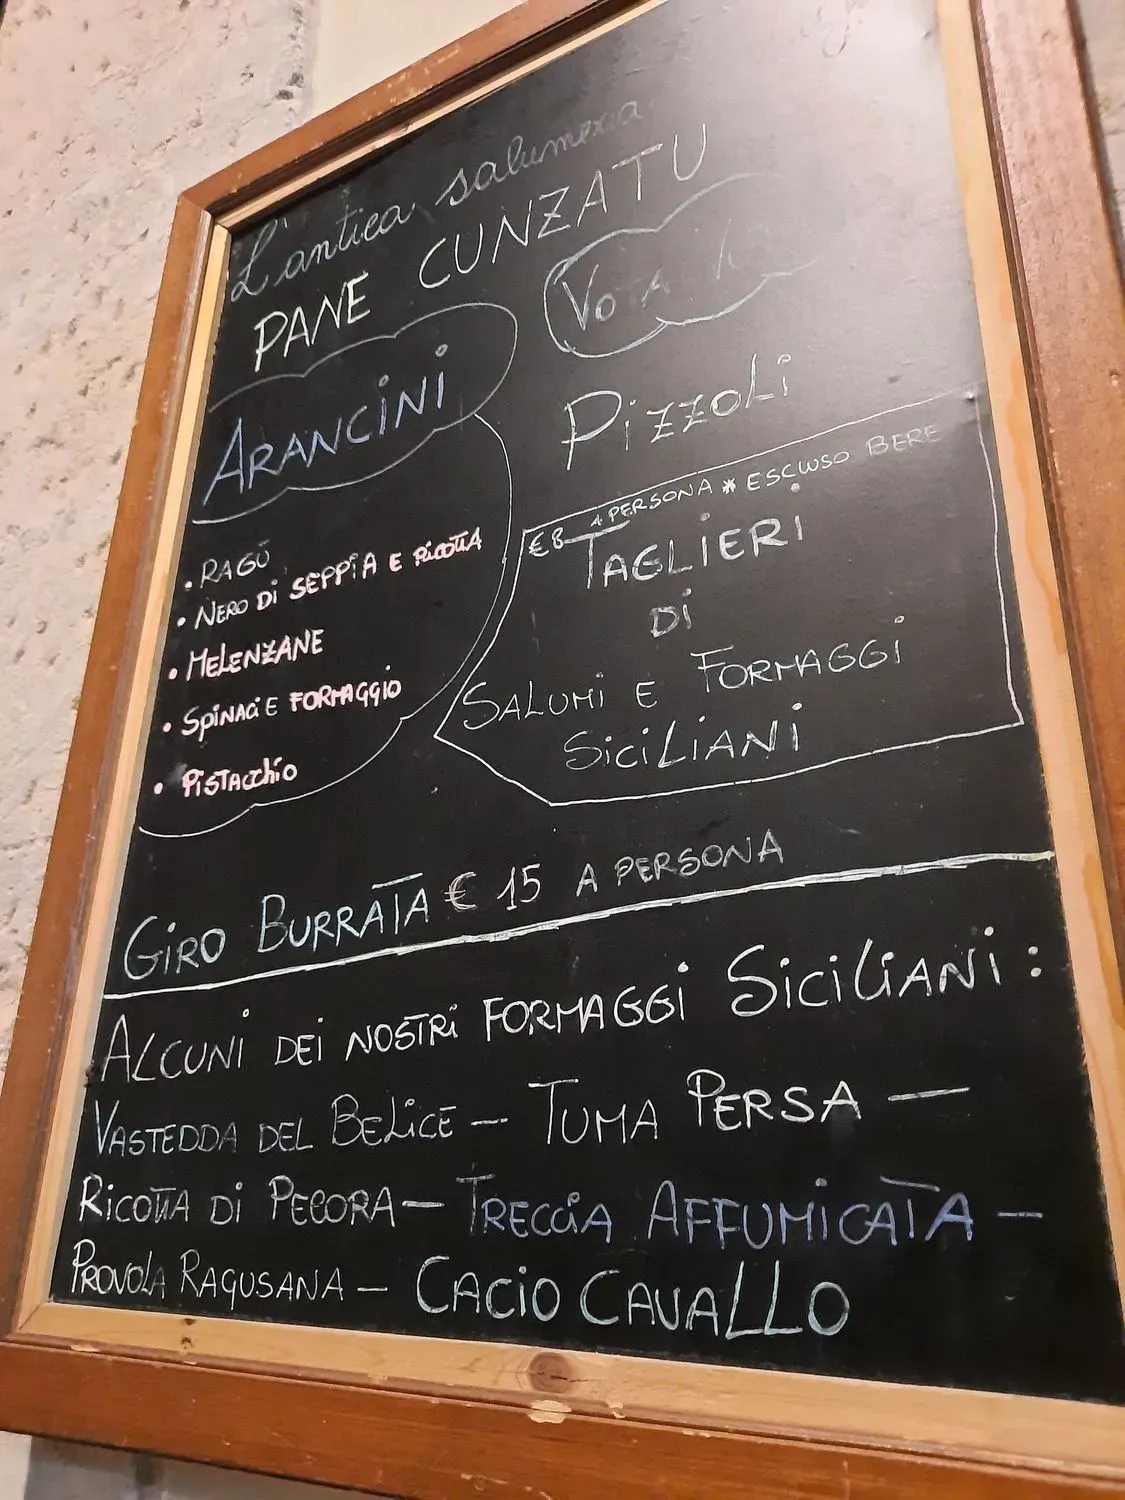 L'antica salumeria
PANE CUNZATU
VOTA
ARANCINI
• RAGÙ
• NERO DI SEPPIA E RICOTTA
• MELENZANE
• SPINACI E FORMAGGIO
• PISTACCHIO
PIZZOLI
€8 A PERSONA * ESCLUSO BERE
TAGLIERI
DI
SALUMI E FORMAGGI
SICILIANI
GIRO BURRATA € 15 A PERSONA
ALCUNI DEI NOSTRI FORMAGGI SICILIANI:
VASTEDDA DEL BELICE - TUMA PERSA -
RICOTTA DI PECORA - TRECCIA AFFUMICATA -
PROVOLA RAGUSANA - CACIO CAVALLO